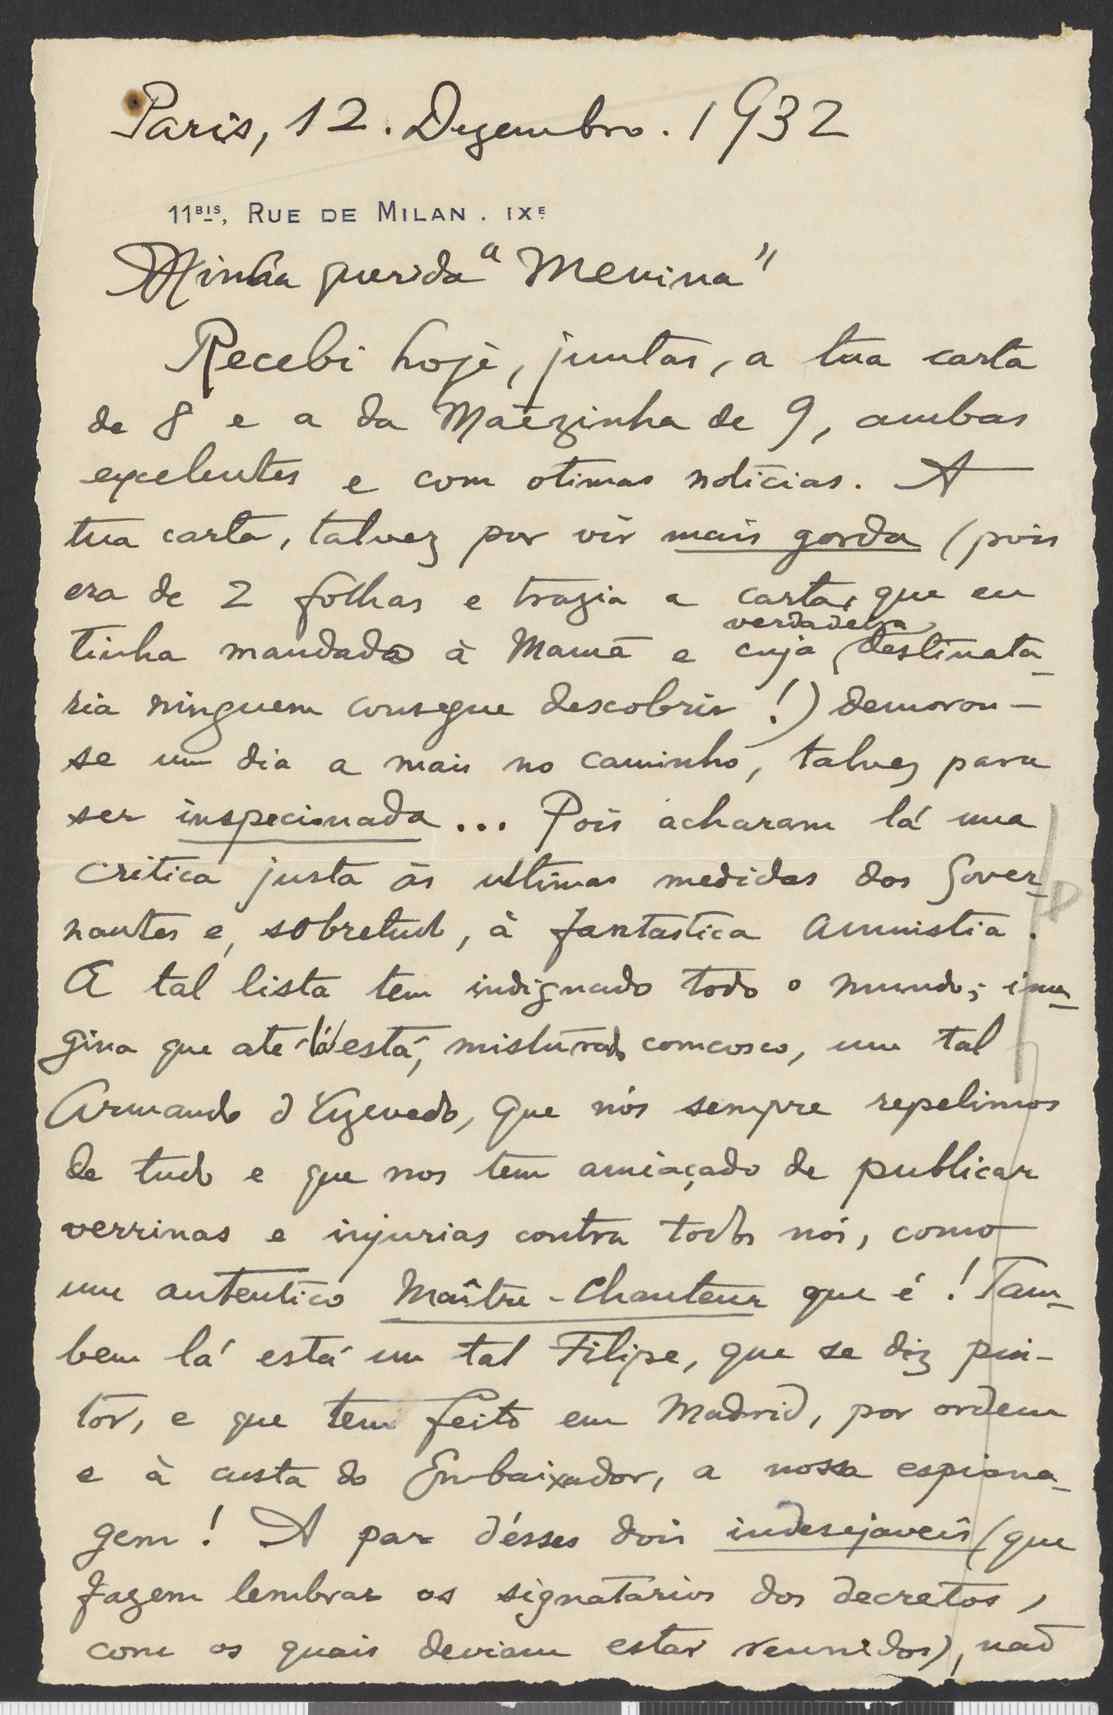 Paris, 12. Dezembro. 1932
11BIS, RUE DE MILAN. IXE
Minha querida "Menina"
Recebi hoje, juntas, a tua carta
de 8 e a da Mãezinha de 9, ambas
excelentes e com otimas notícias. A
tua carta, talvez por vir mais gorda (pois
era de 2 folhas e trazia a carta, que eu
tinha mandado à Mamã e cuja verdadeira destinata-
ria ninguem consegue descobrir!) demorou-
se um dia a mais no caminho, talvez para
ser inspecionada... Pois acharam lá uma
critica justa ás ultimas medidas dos Gover-
nantes e, sobretudo, à fantastica Amnistia.
A tal lista tem indignado todo o mundo; ima-
gina que até lá está, misturado comnosco, um tal
Armando d'Azevedo, que nós sempre repelimos
de tudo e que nos tem ameaçado de publicar
verrinas e injurias contra todos nós, como
um autentico Maître-Chanteur que é! Tam-
bem lá está um tal Filipe, que se diz pin-
tor, e que tem feito em Madrid, por ordem
e à custa do Embaixador, a nossa espiona-
gem! A par désses dois indesejaveis (que
fazem lembrar os signatarios dos decretos,
com os quais deviam estar reunidos), não